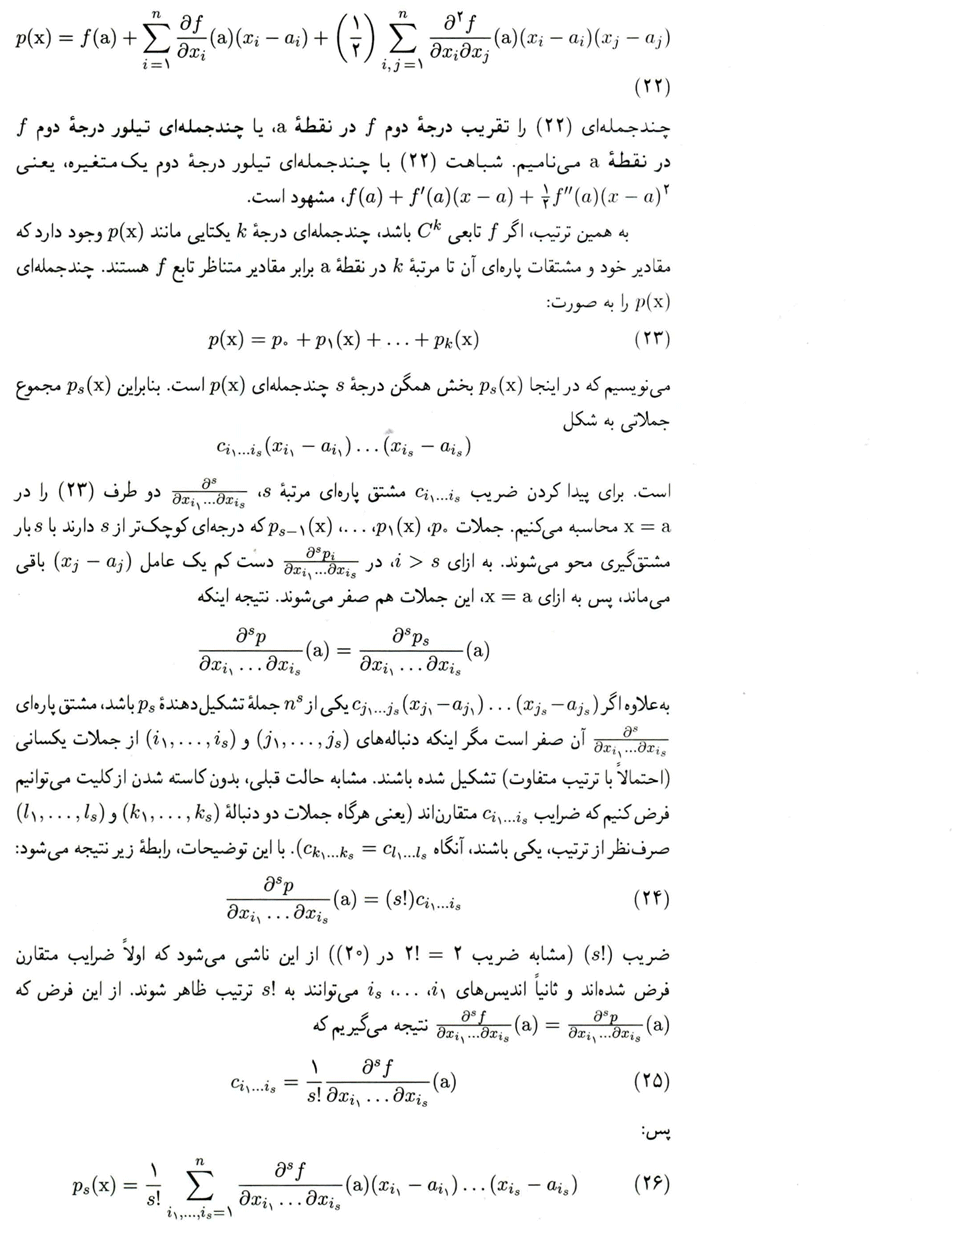 p(x) = f(a) + \sum_{i=۱}^{n} \frac{∂f}{∂x_i}(a)(x_i − a_i) + (\frac{۱}{۲}) \sum_{i,j=۱}^{n} \frac{∂^۲ f}{∂x_i ∂x_j}(a)(x_i − a_i)(x_j − a_j)
(۲۲)
چندجمله‌ای (۲۲) را تقریب درجهٔ دوم f در نقطهٔ a، یا چندجمله‌ای تیلور درجهٔ دوم f
در نقطهٔ a می‌نامیم. شباهت (۲۲) با چندجمله‌ای تیلور درجهٔ دوم یک‌متغیره، یعنی
f(a) + f′(a)(x − a) + \frac{۱}{۲} f″(a)(x − a)^۲، مشهود است.
به همین ترتیب، اگر f تابعی C^k باشد، چندجمله‌ای درجهٔ k یکتایی مانند p(x) وجود دارد که
مقادیر خود و مشتقات پاره‌ای آن تا مرتبهٔ k در نقطهٔ a برابر مقادیر متناظر تابع f هستند. چندجمله‌ای
p(x) را به صورت:
p(x) = p_۰ + p_۱(x) + ... + p_k(x) (۲۳)
می‌نویسیم که در اینجا p_s(x) بخش همگن درجهٔ s چندجمله‌ای p(x) است. بنابراین p_s(x) مجموع
جملاتی به شکل
c_{i_۱...i_s}(x_{i_۱} − a_{i_۱})...(x_{i_s} − a_{i_s})
است. برای پیدا کردن ضریب c_{i_۱...i_s} مشتق پاره‌ای مرتبهٔ s، \frac{∂^s}{∂x_{i_۱}...∂x_{i_s}} دو طرف (۲۳) را در
x = a محاسبه می‌کنیم. جملات p_۰، p_۱(x)، ...، p_{s−۱}(x) که درجه‌ای کوچک‌تر از s دارند با s بار
مشتق‌گیری محو می‌شوند. به ازای i > s، در \frac{∂^s p_i}{∂x_{i_۱}...∂x_{i_s}} دست کم یک عامل (x_j − a_j) باقی
می‌ماند، پس به ازای x = a، این جملات هم صفر می‌شوند. نتیجه اینکه
\frac{∂^s p}{∂x_{i_۱}...∂x_{i_s}}(a) = \frac{∂^s p_s}{∂x_{i_۱}...∂x_{i_s}}(a)
به‌علاوه اگر c_{j_۱...j_s}(x_{j_۱} − a_{j_۱})...(x_{j_s} − a_{j_s}) یکی از n^s جملهٔ تشکیل‌دهندهٔ p_s باشد، مشتق پاره‌ای
\frac{∂^s}{∂x_{i_۱}...∂x_{i_s}} آن صفر است مگر اینکه دنباله‌های (j_۱, ..., j_s) و (i_۱, ..., i_s) از جملات یکسانی
(احتمالاً با ترتیب متفاوت) تشکیل شده باشند. مشابه حالت قبلی، بدون کاسته شدن از کلیت می‌توانیم
فرض کنیم که ضرایب c_{i_۱...i_s} متقارن‌اند (یعنی هرگاه جملات دو دنبالهٔ (k_۱, ..., k_s) و (l_۱, ..., l_s)
صرف‌نظر از ترتیب، یکی باشند، آنگاه c_{k_۱...k_s} = c_{l_۱...l_s}). با این توضیحات، رابطهٔ زیر نتیجه می‌شود:
\frac{∂^s p}{∂x_{i_۱}...∂x_{i_s}}(a) = (s!)c_{i_۱...i_s} (۲۴)
ضریب (s!) (مشابه ضریب ۲! = ۲ در (۲۰)) از این ناشی می‌شود که اولاً ضرایب متقارن
فرض شده‌اند و ثانیاً اندیس‌های i_۱، ...، i_s می‌توانند به s! ترتیب ظاهر شوند. از این فرض که
\frac{∂^s f}{∂x_{i_۱}...∂x_{i_s}}(a) = \frac{∂^s p}{∂x_{i_۱}...∂x_{i_s}}(a) نتیجه می‌گیریم که
c_{i_۱...i_s} = \frac{۱}{s!} \frac{∂^s f}{∂x_{i_۱}...∂x_{i_s}}(a) (۲۵)
پس:
p_s(x) = \frac{۱}{s!} \sum_{i_۱,...,i_s=۱}^{n} \frac{∂^s f}{∂x_{i_۱}...∂x_{i_s}}(a)(x_{i_۱} − a_{i_۱})...(x_{i_s} − a_{i_s}) (۲۶)